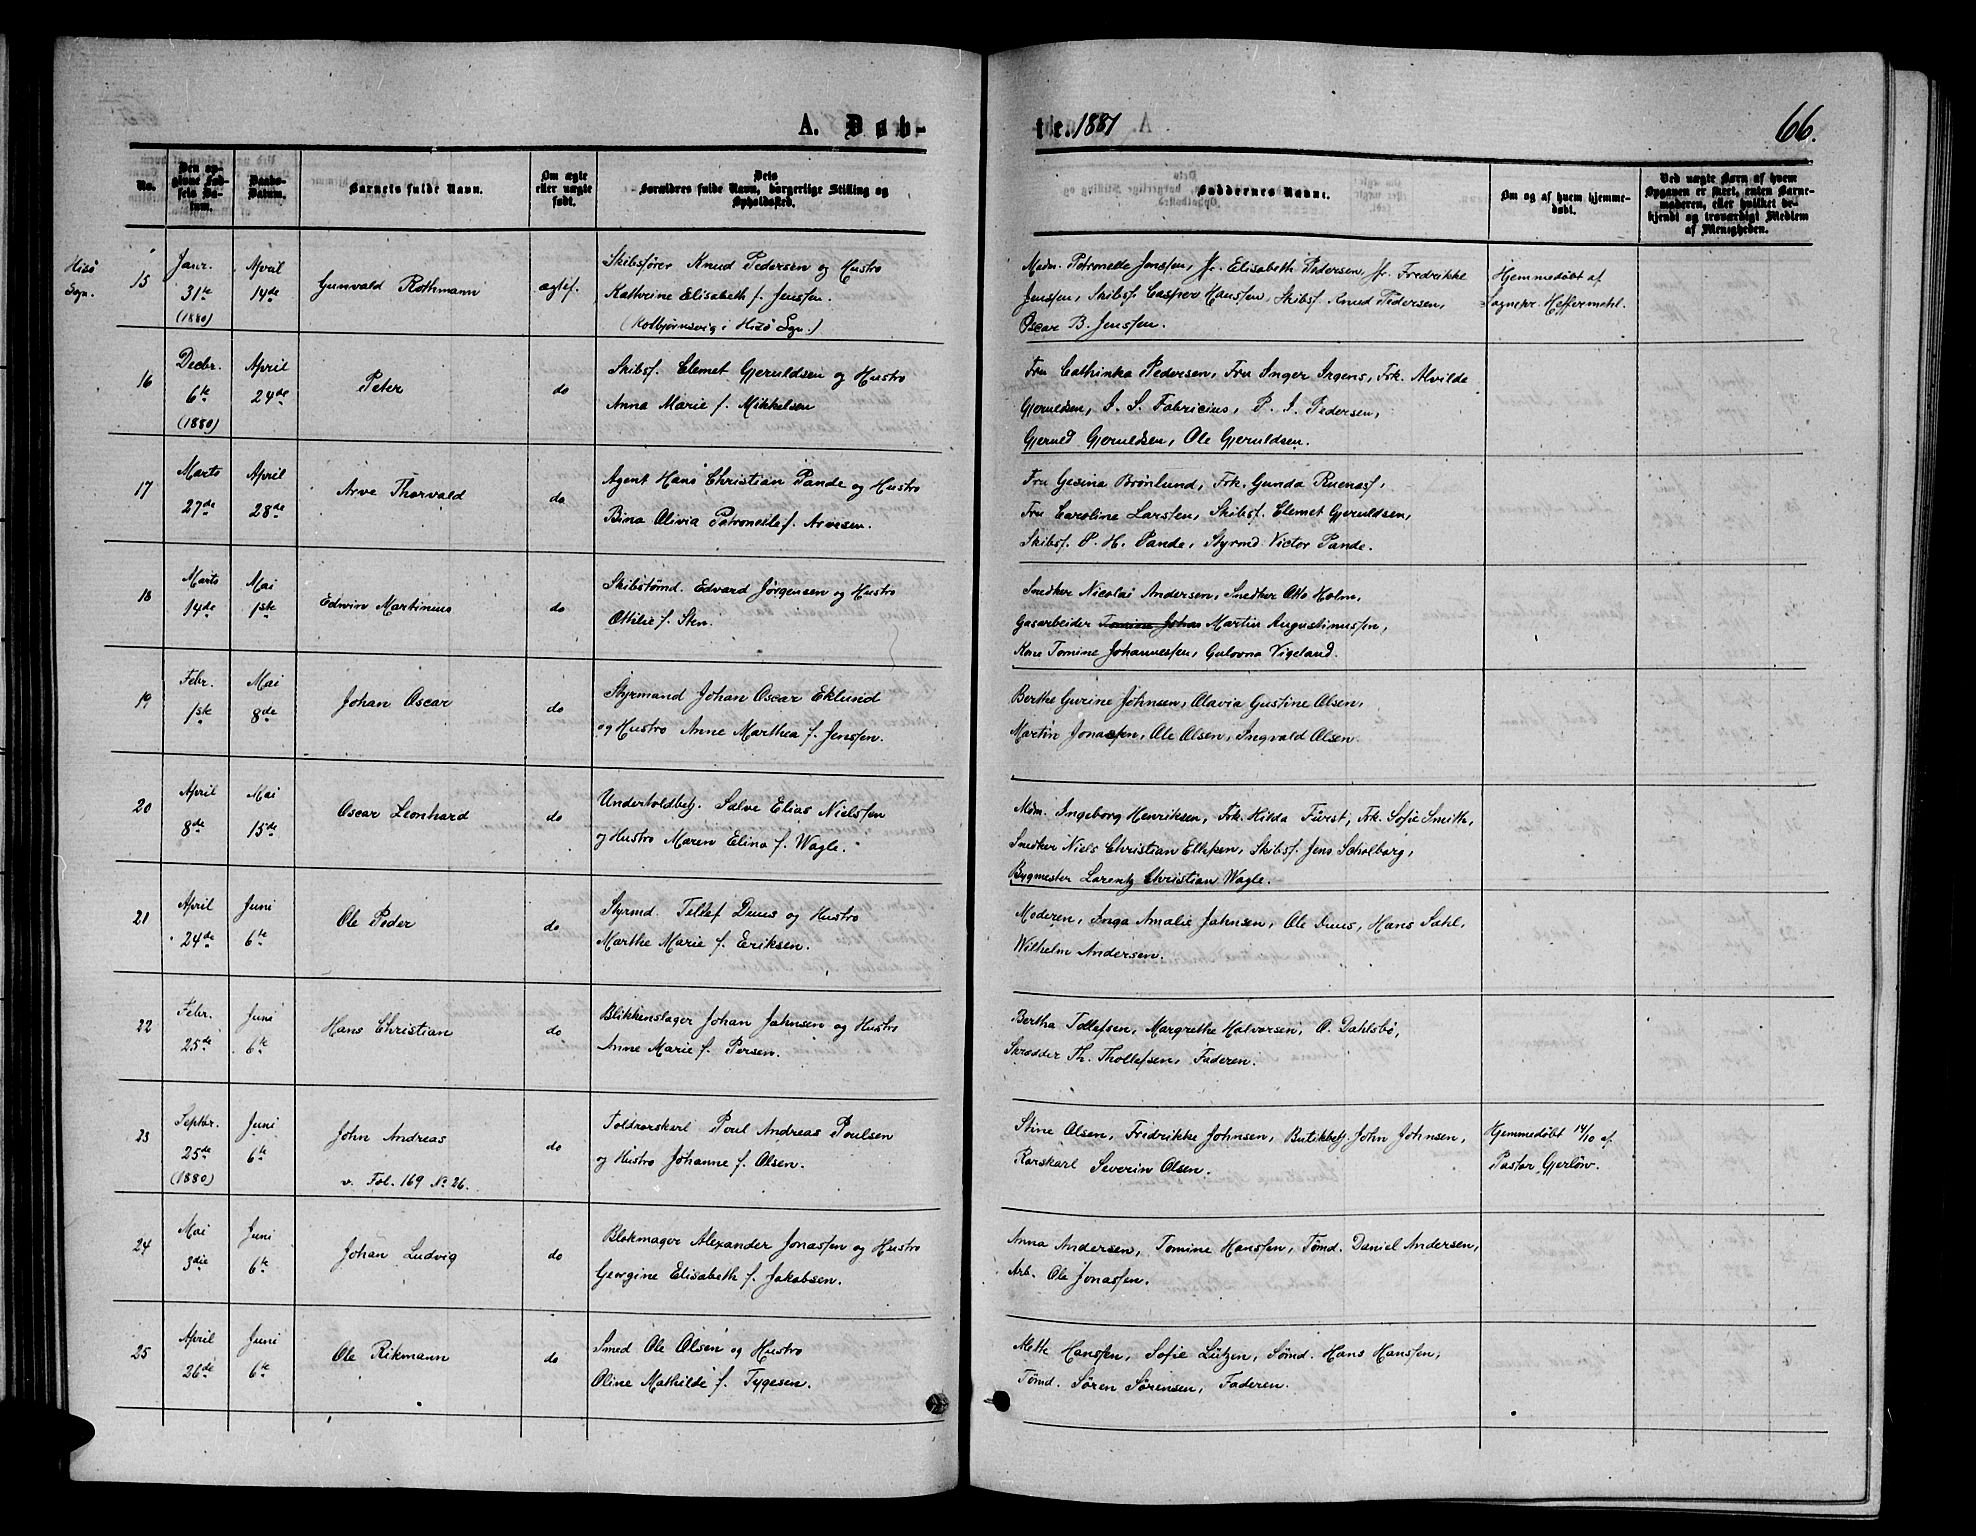 A. Døb-
te. 1881
66.
No.
Den opgivne Fødsels Datum.
Daabs-Datum.
Barnets fulde Navn.
Om ægte eller uægte født.
Dets Forældres fulde Navn, borgerlige Stilling og Opholdssted.
Faddernes Navne.
Om og af hvem hjemmedøbt.
Ved uægte Børn af hvem Opgaven er skeet, enten Barnemoderen, eller hvilket bekjendt og troværdigt Medlem af Menigheden.
Hisø Sogn.
15
Janr. 31te (1880)
April 14de
Gunvald Rothmann
ægtef.
Skibsfører Knud Pedersen og Hustro
Kathrine Elisabeth f. Jenssen.
(Kolbjørnsvig i Hisø Sgn.)
Madm. Petronelle Jenssen, Jr. Elisabeth Pedersen, Jr. Fredrikke
Jenssen, Skibsf. Casper Hanssen, Skibsf. Knud Pedersen,
Oscar B. Jenssen.
Hjemmedøbt af
Sognepr. Heffermehl.
16
Decbr. 6te (1880)
April 24de
Peter
do
Skibsf. Clemet Gjeruldsen og Hustro
Anna Marie f. Mikkelsen
Fru Cathinka Pedersen, Fru Inger Irgens, Frk. Alvilde
Gjeruldsen, I. S. Fabricius, P. I. Pedersen,
Gjeruld Gjeruldsen, Ole Gjeruldsen.
17
Marts 27de
April 28de
Arve Thorvald
do
Agent Hans Christian Pande og Hustro
Bina Olivia Petronelle f. Arvesen.
Fru Gesina Brönlund, Frk. Gunda
Fru Caroline Larssen, Skibsf. Clemet Gjeruldsen,
Skibsf. P. H. Pande, Styrmd. Victor Pande.
18
Marts 14de
Mai 1ste
Edwin Martinius
do
Skibstømd. Edvard Jørgensen og Hustro
Ottilie f. Sten.
Snedker Nicolai Andersen, Snedker Otto Holm,
Gasarbeider Tomine Johan Martin Augustinussen,
Kone Tomine Johannessen, Gulovna Vigeland.
19
Febr. 1ste
Mai 8de
Johan Oscar
do
Styrmand Johan Oscar Eklund
og Hustro Anne Marthea f. Jenssen.
Berthe Gurine Johnsen, Olavia Gustine Olsen,
Martin Jonassen, Ole Olsen, Ingvald Olsen.
20
April 8de
Mai 15de
Oscar Leonhard
do
Undertoldbetj. Salve Elias Nielssen
og Hustro Maren Elina f. Wagle.
Mdm. Ingeborg Henriksen, Frk. Hilda Fürst, Frk. Sofie Smith,
Snedker Niels Christian Ellefsen, Skibsf. Jens Scholborg,
Bygmester Lorentz Christian Wagle.
21
April 24de
Juni 6te
Ole Peder
do
Styrmd. Tellef Duus og Hustro
Marthe Marie f. Eriksen.
Moderen, Inga Amalie Jahnsen, Ole Duus, Hans Dahl,
Wilhelm Andersen.
22
Febr. 25de
Juni 6te
Hans Christian
do
Blikkenslager Johan Jahnsen og Hustro
Anne Marie f. Persen.
Bertha Tellefsen, Margrethe Halvorsen, O. Dahlsbö,
Skrædder Th. Thollefsen, Faderen.
23
Septbr. 25de (1880)
Juni 6te
John Andreas
v. Fol. 169 No 26.
do
Toldrorskarl Poul Andreas Poulsen
og Hustro Johanne f. Olsen.
Stine Olsen, Fredrikke Johnsen, Butikbetj. John Johnsen,
Rorskarl Severin Olsen.
Hjemmedøbt 14/10 af
Pastor Gjerløw.
24
Mai 3die
Juni 6te
Johan Ludvig
do
Blokmager Alexander Jonassen og Hustro
Georgine Elisabeth f. Jakobsen.
Anna Andersen, Tomine Hanssen, Tømd. Daniel Andersen,
Arb. Ole Jonassen.
25
April 26de
Juni 6te
Ole Rikmann
do
Smed Ole Olsen og Hustro
Oline Mathilde f. Tygesen.
Mette Hanssen, Sofie Lützen, Sømd. Hans Hanssen,
Tømd. Sören Sörensen, Faderen.